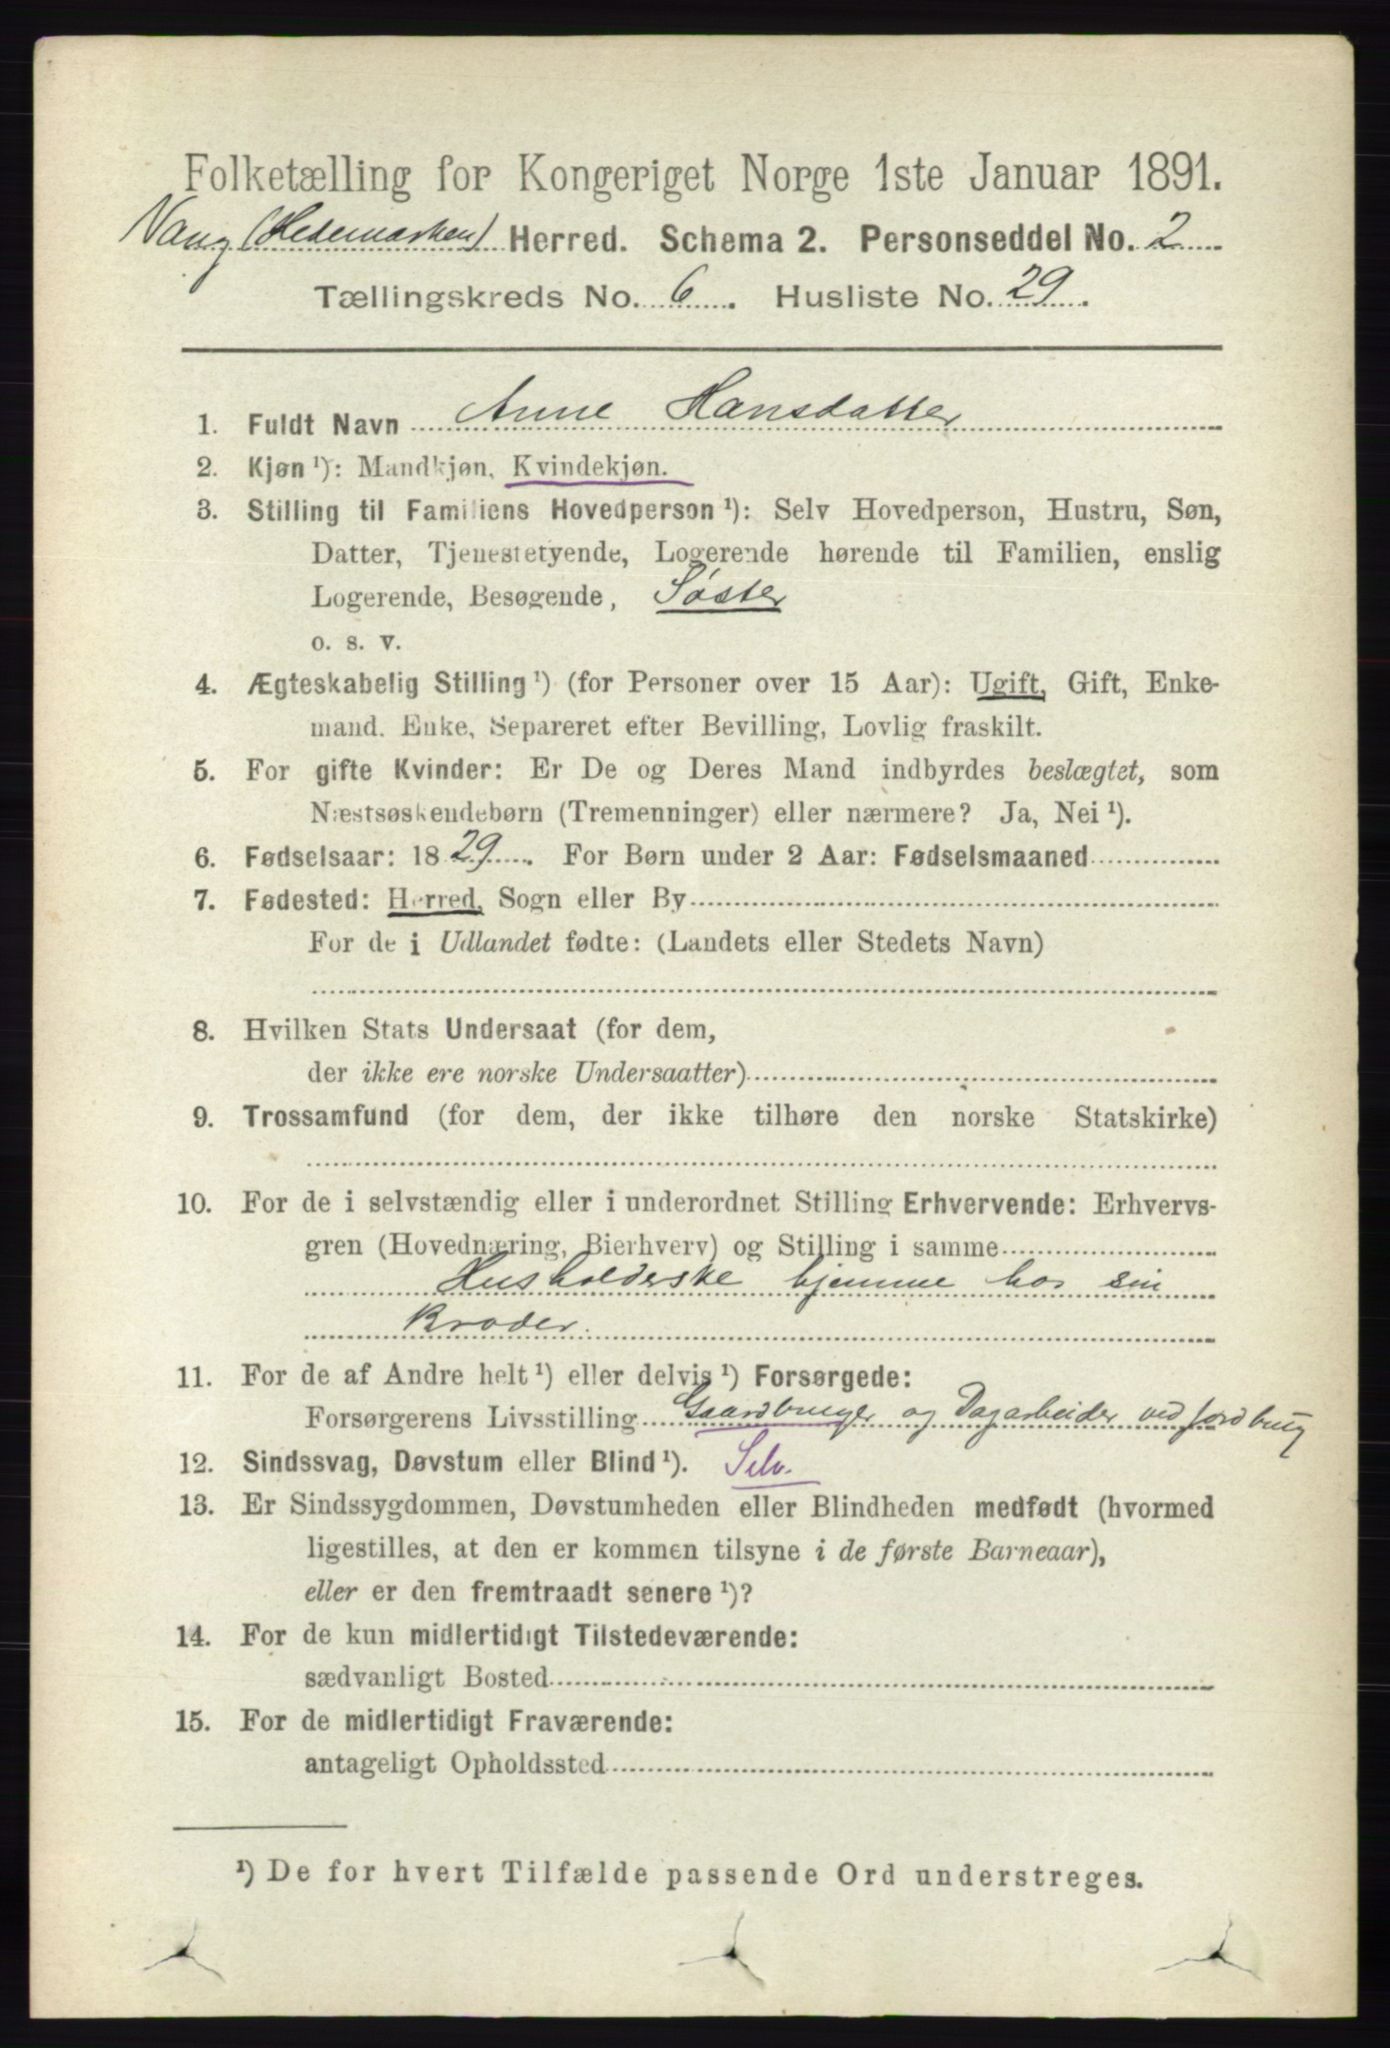 Folketælling for Kongeriget Norge 1ste Januar 1891.
Vang (Hedemarken) Herred. Schema 2. Personseddel No. 2
Tællingskreds No. 6. Husliste No. 29.
1. Fuldt Navn Anne Hansdatter
2. Kjøn ¹): Mandkjøn, Kvindekjøn.
3. Stilling til Familiens Hovedperson ¹): Selv Hovedperson, Hustru, Søn,
Datter, Tjenestetyende, Logerende hørende til Familien, enslig
Logerende, Besøgende, Søster
o. s. v.
4. Ægteskabelig Stilling ¹) (for Personer over 15 Aar): Ugift, Gift, Enke-
mand. Enke, Separeret efter Bevilling, Lovlig fraskilt.
5. For gifte Kvinder: Er De og Deres Mand indbyrdes beslægtet, som
Næstsøskendebørn (Tremenninger) eller nærmere? Ja, Nei ¹).
6. Fødselsaar: 1829. For Børn under 2 Aar: Fødselsmaaned
7. Fødested: Herred, Sogn eller By
For de i Udlandet fødte: (Landets eller Stedets Navn)
8. Hvilken Stats Undersaat (for dem,
der ikke ere norske Undersaatter)
9. Trossamfund (for dem, der ikke tilhøre den norske Statskirke)
10. For de i selvstændig eller i underordnet Stilling Erhvervende: Erhvervs-
gren (Hovednæring, Bierhverv) og Stilling i samme
Husholderske hjemme hos sin
Broder.
11. For de af Andre helt ¹) eller delvis ¹) Forsørgede:
Forsørgerens Livsstilling Gaardbruger og Dagarbeider ved Jordbrug
12. Sindssvag, Døvstum eller Blind ¹). Selv.
13. Er Sindssygdommen, Døvstumheden eller Blindheden medfødt (hvormed
ligestilles, at den er kommen tilsyne i de første Barneaar),
eller er den fremtraadt senere ¹)?
14. For de kun midlertidigt Tilstedeværende:
sædvanligt Bosted
15. For de midlertidigt Fraværende:
antageligt Opholdssted
¹) De for hvert Tilfælde passende Ord understreges.